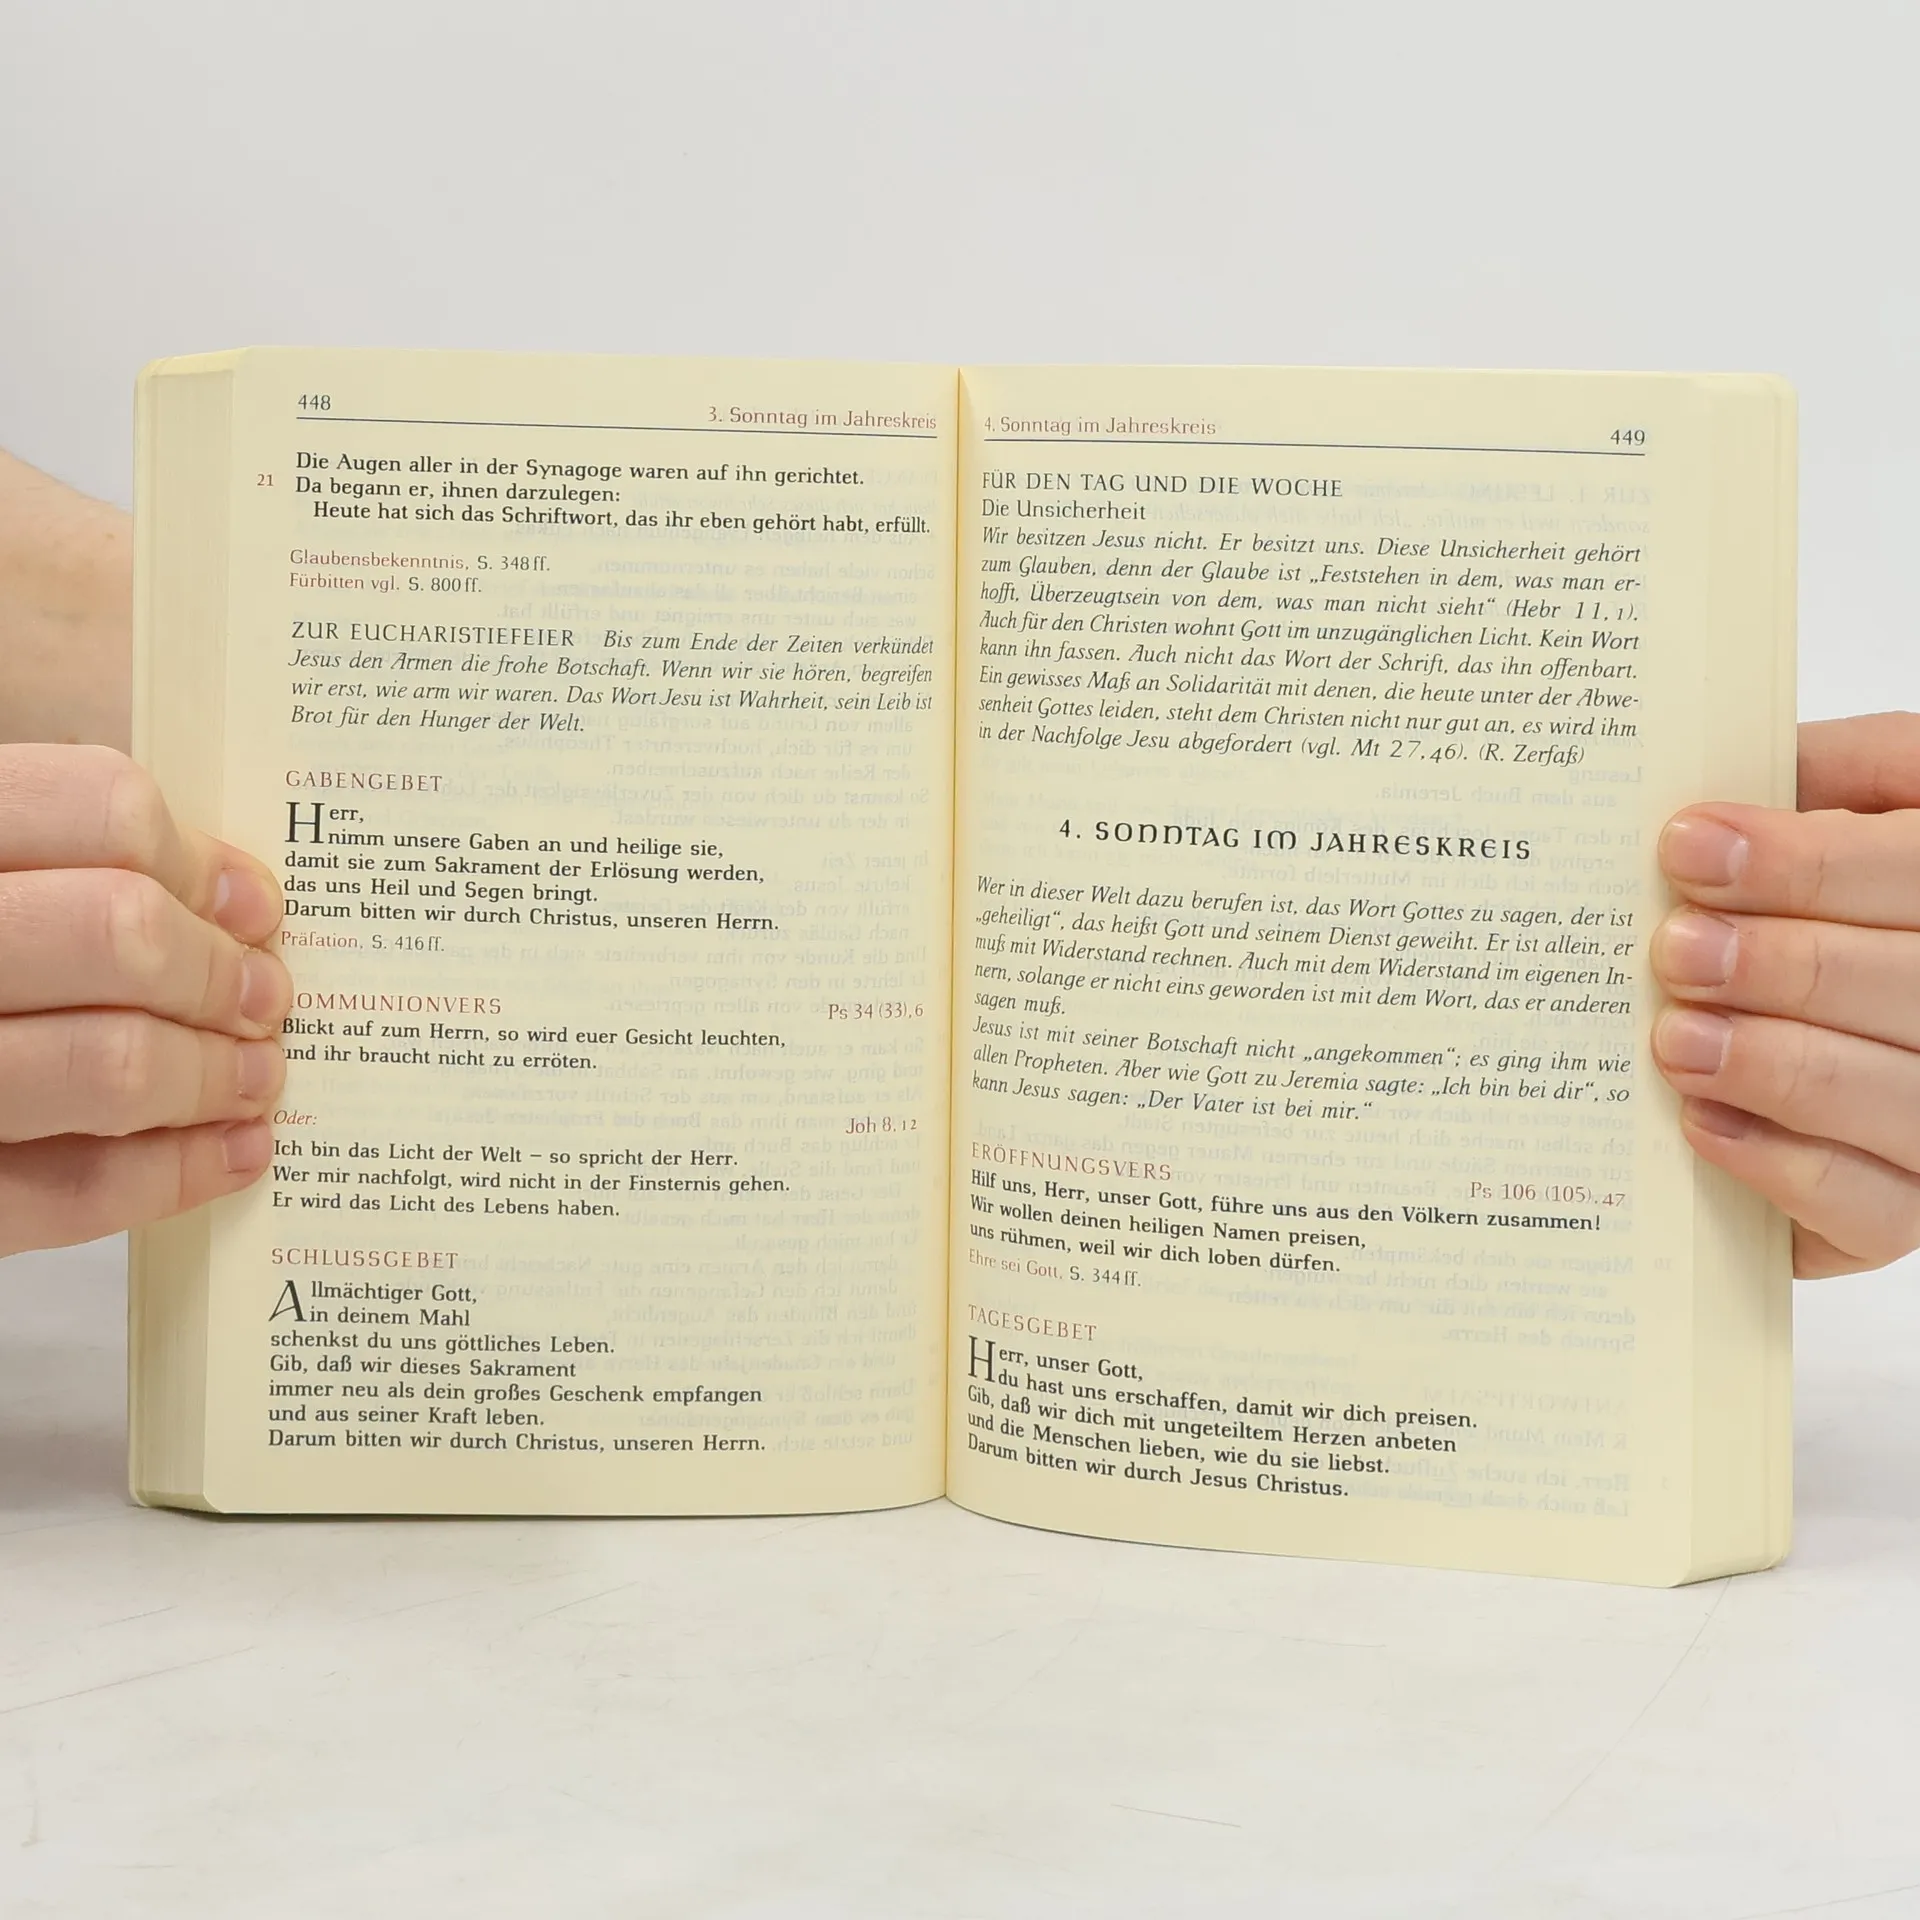 448
3. Sonntag im Jahreskreis
Die Augen aller in der Synagoge waren auf ihn gerichtet.
21 Da begann er, ihnen darzulegen:
Heute hat sich das Schriftwort, das ihr eben gehört habt, erfüllt.
Glaubensbekenntnis, S. 348 ff.
Fürbitten vgl. S. 800 ff.
ZUR EUCHARISTIEFEIER Bis zum Ende der Zeiten verkündet
Jesus den Armen die frohe Botschaft. Wenn wir sie hören, begreifen
wir erst, wie arm wir waren. Das Wort Jesu ist Wahrheit, sein Leib ist
Brot für den Hunger der Welt.
GABENGEBET
Herr,
nimm unsere Gaben an und heilige sie,
damit sie zum Sakrament der Erlösung werden,
das uns Heil und Segen bringt.
Darum bitten wir durch Christus, unseren Herrn.
Präfation, S. 416 ff.
OMMUNIONVERS Ps 34 (33), 6
Blickt auf zum Herrn, so wird euer Gesicht leuchten,
und ihr braucht nicht zu erröten.
Oder: Joh 8, 12
Ich bin das Licht der Welt – so spricht der Herr.
Wer mir nachfolgt, wird nicht in der Finsternis gehen.
Er wird das Licht des Lebens haben.
SCHLUSSGEBET
Allmächtiger Gott,
in deinem Mahl
schenkst du uns göttliches Leben.
Gib, daß wir dieses Sakrament
immer neu als dein großes Geschenk empfangen
und aus seiner Kraft leben.
Darum bitten wir durch Christus, unseren Herrn.
4. Sonntag im Jahreskreis
449
FÜR DEN TAG UND DIE WOCHE
Die Unsicherheit
Wir besitzen Jesus nicht. Er besitzt uns. Diese Unsicherheit gehört
zum Glauben, denn der Glaube ist „Feststehen in dem, was man er-
hofft, Überzeugtsein von dem, was man nicht sieht“ (Hebr 11, 1).
Auch für den Christen wohnt Gott im unzugänglichen Licht. Kein Wort
kann ihn fassen. Auch nicht das Wort der Schrift, das ihn offenbart.
Ein gewisses Maß an Solidarität mit denen, die heute unter der Abwe-
senheit Gottes leiden, steht dem Christen nicht nur gut an, es wird ihm
in der Nachfolge Jesu abgefordert (vgl. Mt 27, 46). (R. Zerfaß)
4. SONNTAG IM JAHRESKREIS
Wer in dieser Welt dazu berufen ist, das Wort Gottes zu sagen, der ist
„geheiligt“, das heißt Gott und seinem Dienst geweiht. Er ist allein, er
muß mit Widerstand rechnen. Auch mit dem Widerstand im eigenen In-
nern, solange er nicht eins geworden ist mit dem Wort, das er anderen
sagen muß.
Jesus ist mit seiner Botschaft nicht „angekommen“; es ging ihm wie
allen Propheten. Aber wie Gott zu Jeremia sagte: „Ich bin bei dir“, so
kann Jesus sagen: „Der Vater ist bei mir.“
ERÖFFNUNGSVERS Ps 106 (105), 47
Hilf uns, Herr, unser Gott, führe uns aus den Völkern zusammen!
Wir wollen deinen heiligen Namen preisen,
uns rühmen, weil wir dich loben dürfen.
Ehre sei Gott, S. 344 ff.
TAGESGEBET
Herr, unser Gott,
du hast uns erschaffen, damit wir dich preisen.
Gib, daß wir dich mit ungeteiltem Herzen anbeten
und die Menschen lieben, wie du sie liebst.
Darum bitten wir durch Jesus Christus.